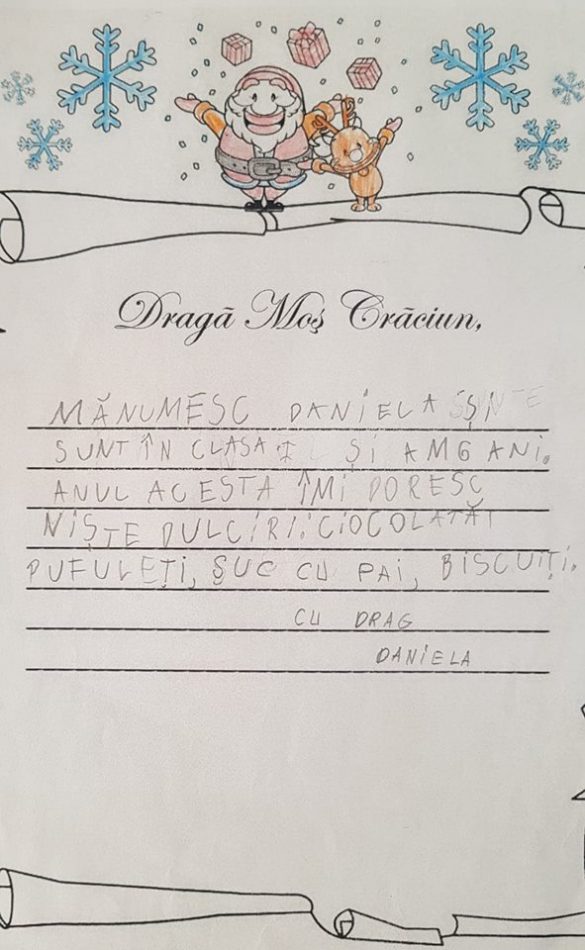 Dragă Moş Crăciun,
MĂNUMESC DANIELA ȘI
SUNT ÎN CLASA I ȘI AM 6 ANI.
ANUL ACESTA ÎMI DORESC
NIȘTE DULCIRI: CIOCOLATĂ,
PUFULEȚI, SUC CU PAI, BISCUIȚI.
CU DRAG
DANIELA